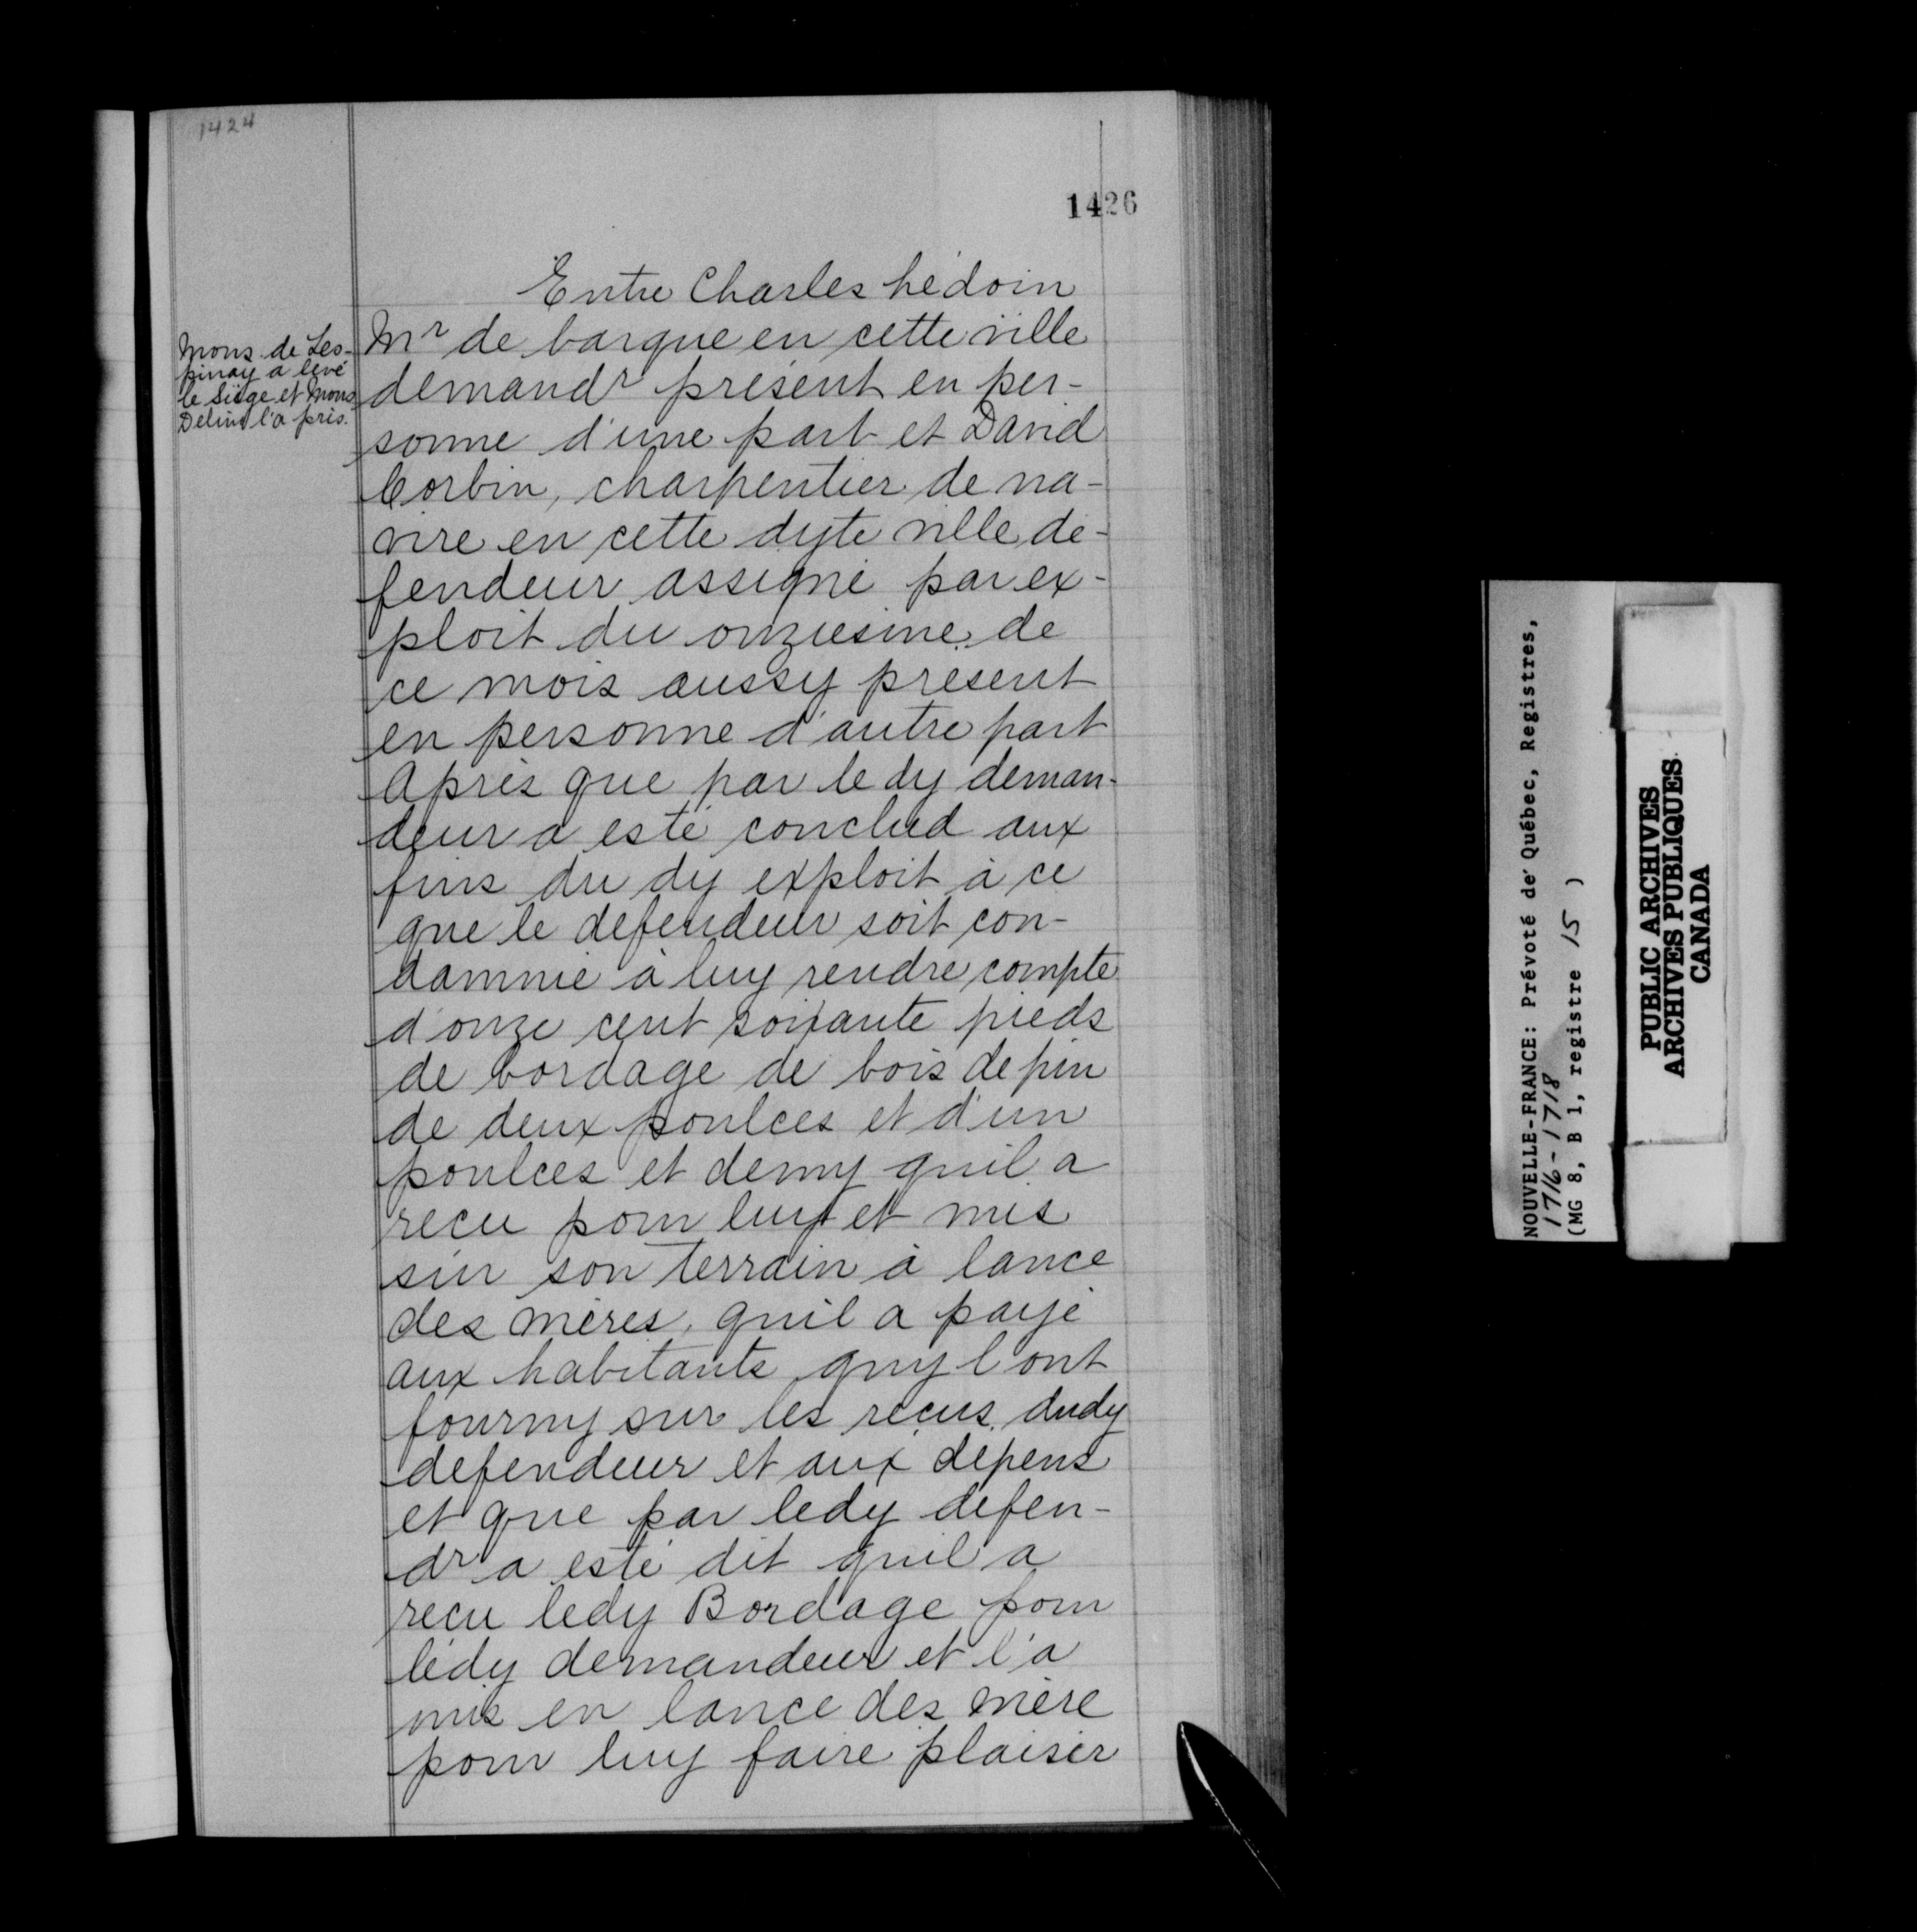 1424
1426
Entre Charles hédoin
Mr de barque en cette ville
demandr présent en per-
sonne d'une part et David
Corbin, charpentier de na-
vire en cette dyte ville de-
fendeur assigné par ex-
ploit du onziesme de
ce mois aussy présent
en personne d'autre part
Après que par le dy deman-
deur a esté conclud aux
fins du dy exploit à ce
que le defendeur soit con-
damnné à luy rendre compte
d'onze cent soixante pieds
de bordage de bois de pin
de deux poulces et d'un
poulces et demy quil a
recu pour luy et mis
sur son terrain à lance
des mères, quil a payé
aux habitants quy l ont
fourny sur les reçus dudy
defendeur et aux dépens
et que par ledy défen-
dr a esté dit quil a
recu ledy Bordage pour
lédy demandeur et l'a
mis en lance des mère
pour luy faire plaisir
Mons. de Les-
pinay a levé
le Siège et Mons
l'a pris.
NOUVELLE-FRANCE: Prévoté de Québec, Registres,
1716-1718
(MG 8, B 1, registre 15 )
PUBLIC ARCHIVES
ARCHIVES PUBLIQUES
CANADA